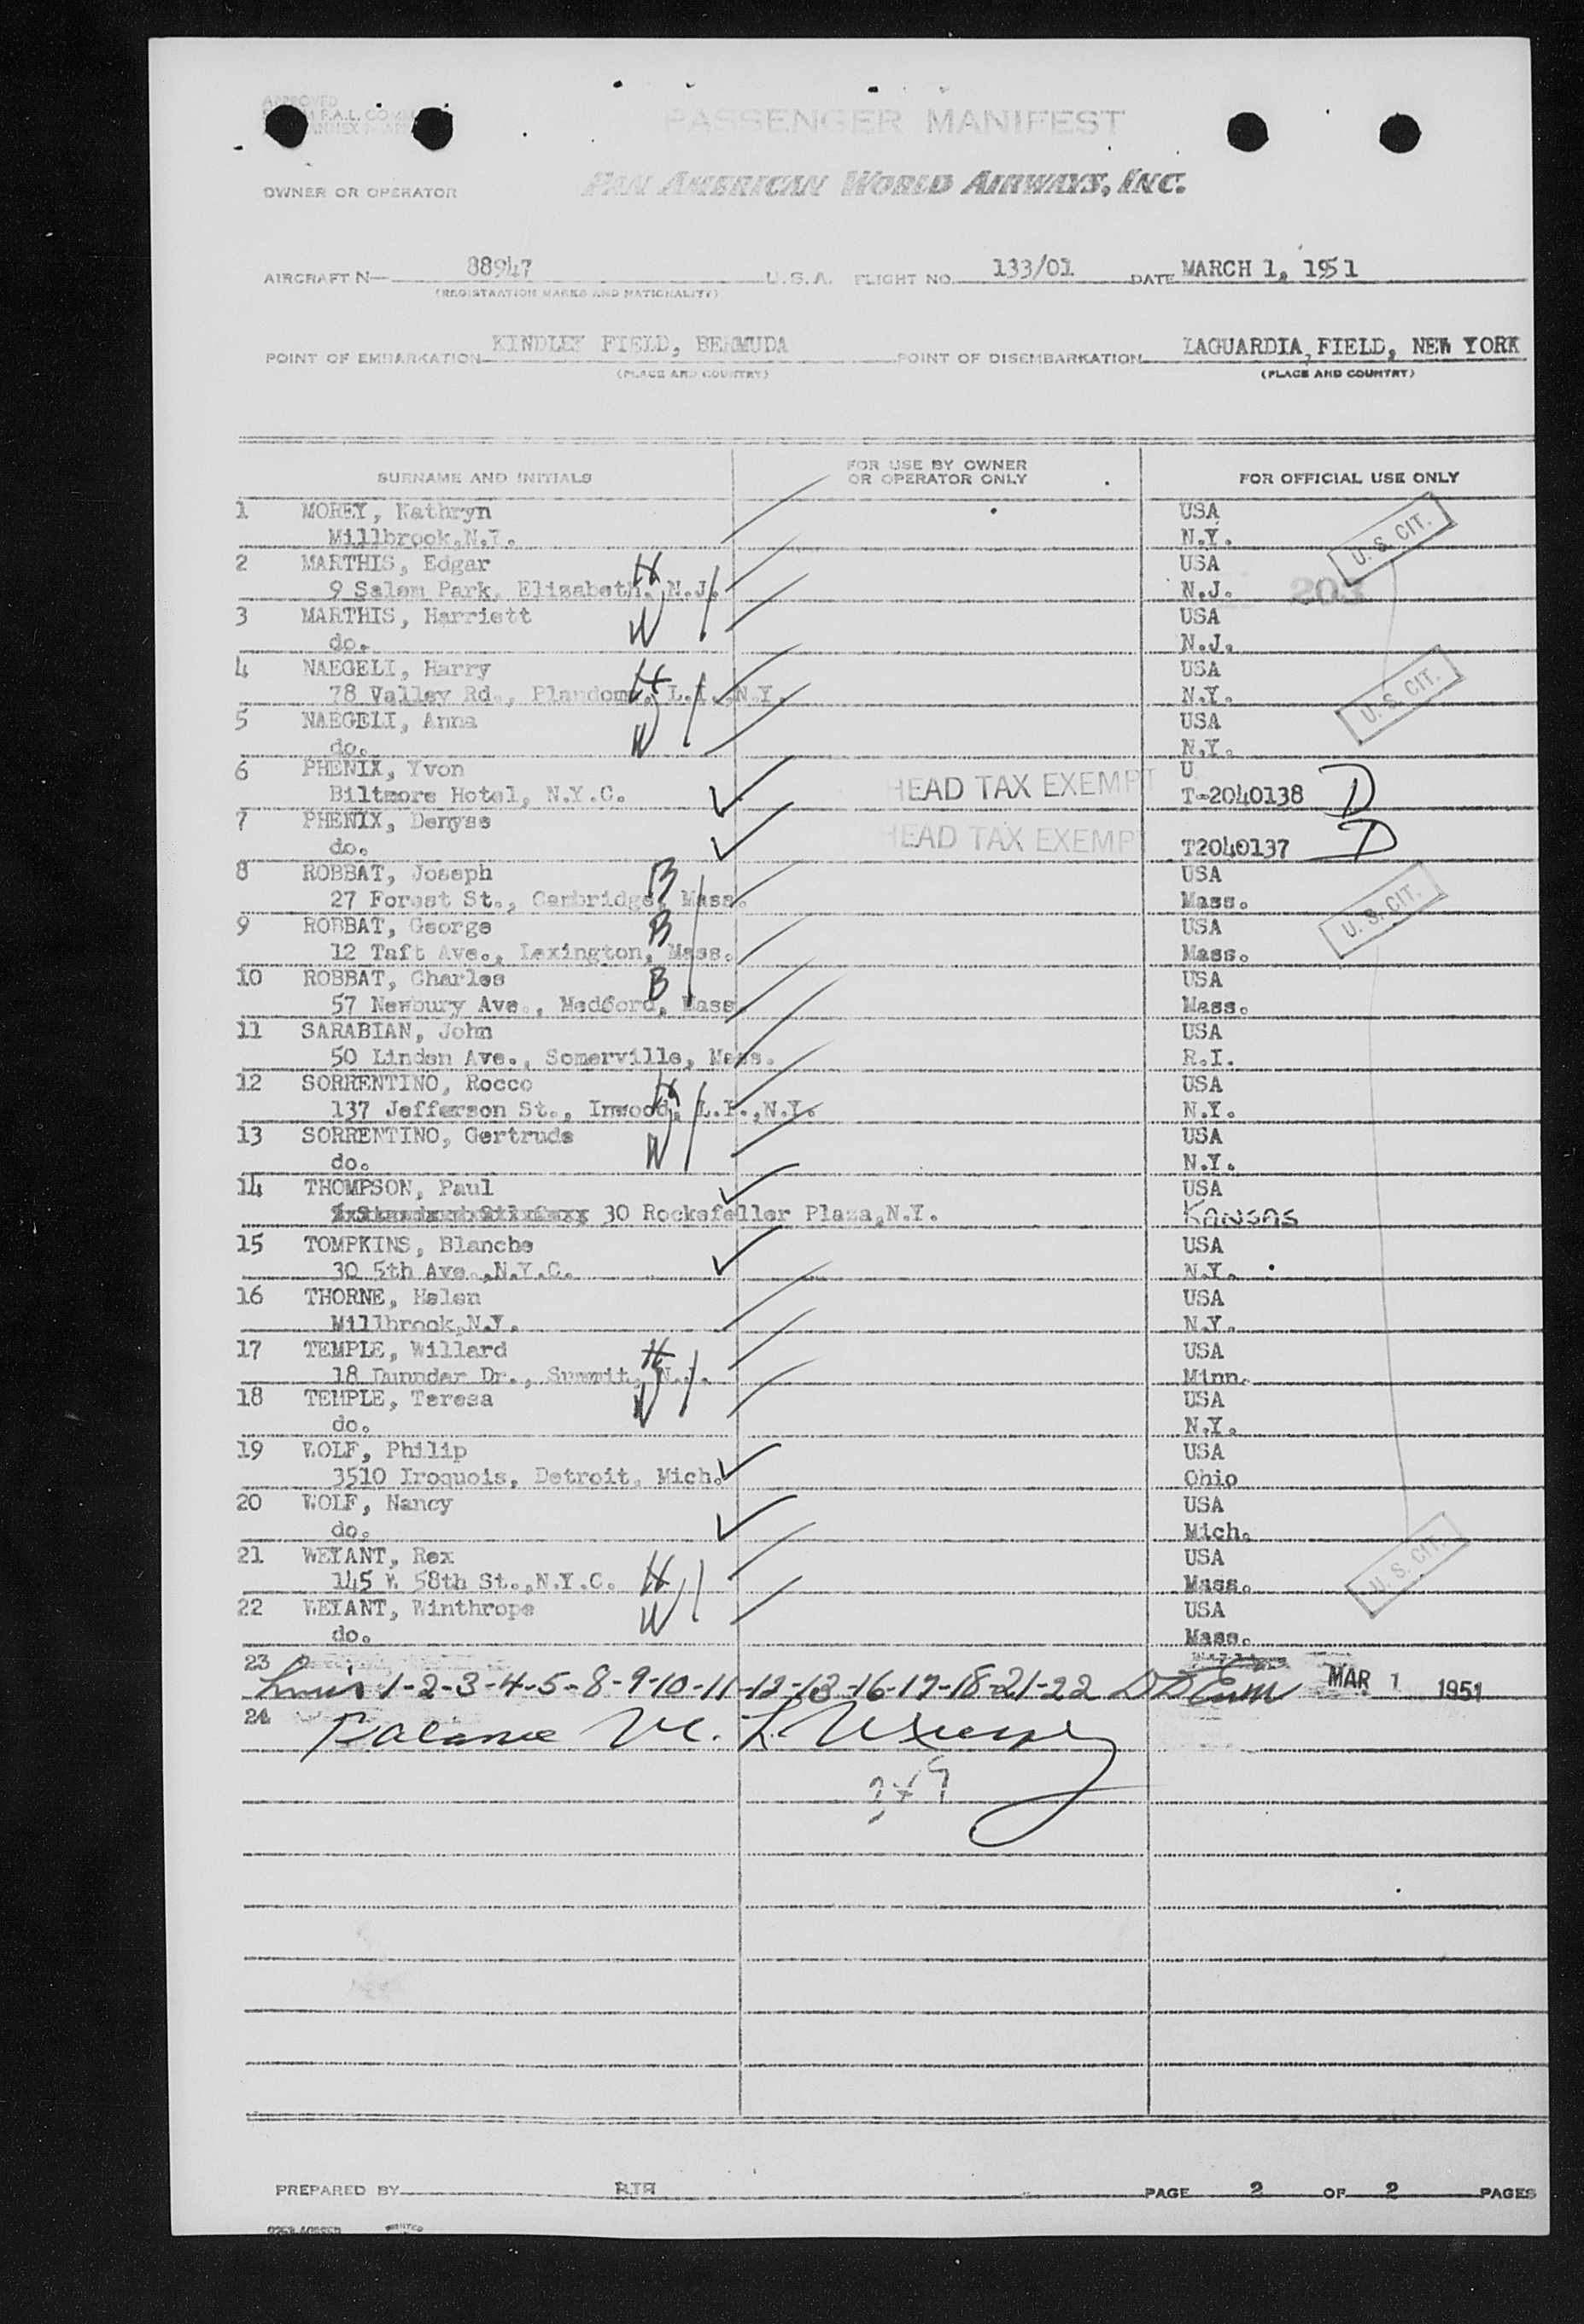 APPROVED
PASSENGER MANIFEST
OWNER OR OPERATOR PAN AMERICAN WORLD AIRWAYS, INC.
AIRCRAFT N— 88947 U.S.A. FLIGHT NO. 133/01 DATE MARCH 1, 1951
(REGISTRATION MARKS AND NATIONALITY)
POINT OF EMBARKATION KINDLEY FIELD, BERMUDA POINT OF DISEMBARKATION LAGUARDIA, FIELD, NEW YORK
(PLACE AND COUNTRY) (PLACE AND COUNTRY)
SURNAME AND INITIALS FOR USE BY OWNER OR OPERATOR ONLY FOR OFFICIAL USE ONLY
1 MOREY, Kathryn USA
Millbrook,N.Y. N.Y. U. S. CIT.
2 MARTHIS, Edgar H USA
9 Salem Park, Elizabeth, N.J. N.J. 203
3 MARTHIS, Harriett W USA
do. N.J.
4 NAEGELI, Harry H USA
78 Valley Rd., Plandome, L.I.,N.Y. N.Y. U. S. CIT.
5 NAEGELI, Anna W USA
do. N.Y.
6 PHENIX, Yvon U
Biltmore Hotel, N.Y.C. HEAD TAX EXEMPT T-2040138 D
7 PHENIX, Denyse
do. HEAD TAX EXEMPT T2040137 D
8 ROBBAT, Joseph B USA
27 Forest St., Cambridge, Mass. Mass. U. S. CIT.
9 ROBBAT, George B USA
12 Taft Ave., Lexington, Mass. Mass.
10 ROBBAT, Charles B USA
57 Newbury Ave., Medford, Mass Mass.
11 SARABIAN, John USA
50 Linden Ave., Somerville, Mass. R.I.
12 SORRENTINO, Rocco H USA
137 Jefferson St., Inwood, L.I.,N.Y. N.Y.
13 SORRENTINO, Gertrude W USA
do. N.Y.
14 THOMPSON, Paul USA
30 Rockefeller Plaza,N.Y. KANSAS
15 TOMPKINS, Blanche USA
30 5th Ave.,N.Y.C. N.Y.
16 THORNE, Helen USA
Millbrook,N.Y. N.Y.
17 TEMPLE, Willard H USA
18 Dunndar Dr., Summit, N.J. Minn.
18 TEMPLE, Teresa W USA
do. N.Y.
19 WOLF, Philip USA
3510 Iroquois, Detroit, Mich. Ohio
20 WOLF, Nancy USA
do. Mich.
21 WEYANT, Rex USA
145 W 58th St.,N.Y.C. H Mass. U. S. CIT.
22 WEYANT, Winthrope W USA
do. Mass.
23
1-2-3-4-5-8-9-10-11-12-13-16-17-18-21-22 MAR 1 1951
24
Balance
PREPARED BY RTH PAGE 2 OF 2 PAGES